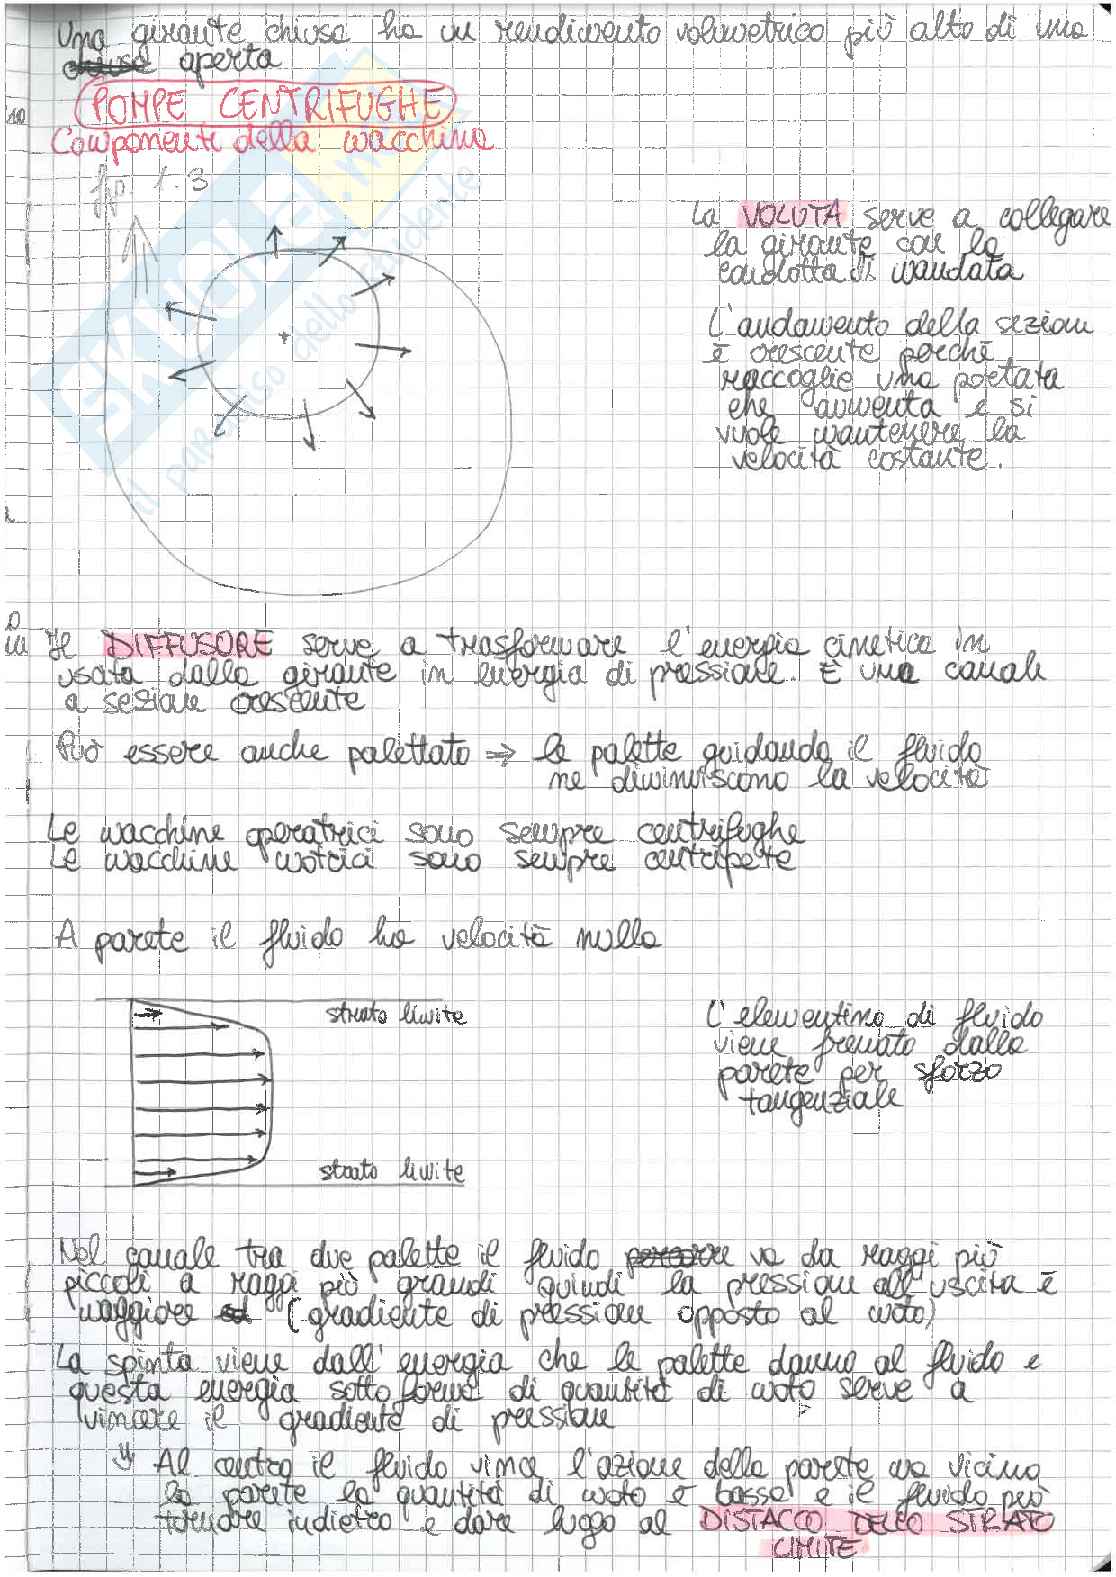 Una girante chiusa ha un rendimento volumetrico più alto di una
chiusa aperta
POMPE CENTRIFUGHE
Componenti della macchina
fig. 1.3
La VOLUTA serve a collegare
la girante con la
condotta di mandata
L'andamento della sezione
è crescente perché
raccoglie una portata
che aumenta e si
vuole mantenere la
velocità costante.
Il DIFFUSORE serve a trasformare l'energia cinetica in
uscita dalla girante in energia di pressione. È una canale
a sezione crescente
Può essere anche palettato ⇒ le palette guidando il fluido
ne diminuiscono la velocità
Le macchine operatrici sono sempre centrifughe
Le macchine motrici sono sempre centripete
A parete il fluido ha velocità nulla
strato limite
L'elementino di fluido
viene frenato dalla
parete per sforzo
tangenziale
strato limite
Nel canale tra due palette il fluido percorre va da raggi più
piccoli a raggi più grandi quindi la pressione all'uscita è
maggiore (gradiente di pressione opposto al moto)
La spinta viene dall'energia che le palette danno al fluido e
questa energia sotto forma di quantità di moto serve a
vincere il gradiente di pressione
Al centro il fluido vince l'azione della parete ma vicino
la parete la quantità di moto è bassa e il fluido può
tornare indietro e dare luogo al DISTACCO DELLO STRATO
LIMITE
SKUOLA.net
il paradiso dello studente